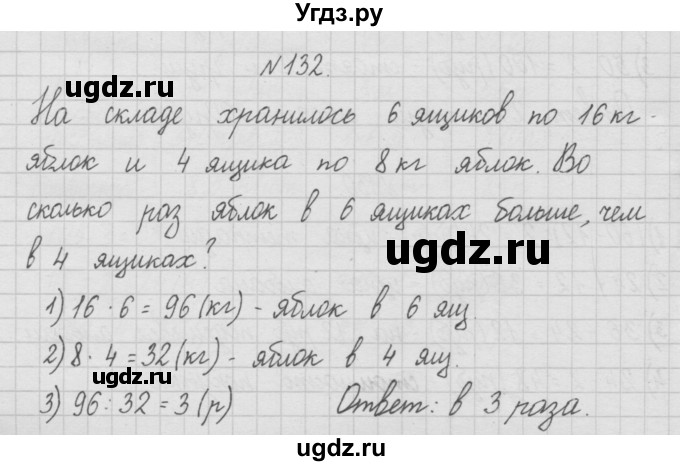 Угдз.ру
№132.
ugdz.ru
На складе хранилось 6 ящиков по 16 кг
яблок и 4 ящика по 8 кг яблок. Во
сколько раз яблок в 6 ящиках больше, чем
ugdz.ru
в 4 ящиках?
1) 16 · 6 = 96 (кг) - яблок в 6 ящ.
2) 8 · 4 = 32 (кг) - яблок в 4 ящ.
ugdz.ru
3) 96 : 32 = 3 (р) Ответ: в 3 раза.
ugdz.ru